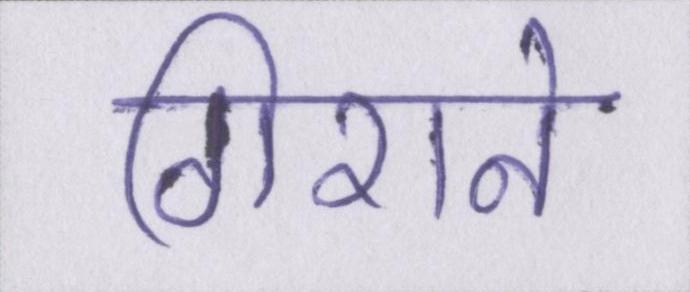 गिराने